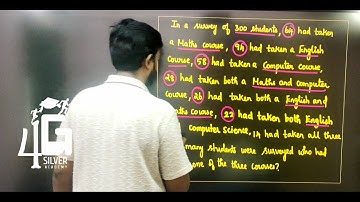 In a survey of 300 students, 64 had taken
a Maths course, 94 had taken a English
course, 58 had taken a Computer Course,
28 had taken both a Maths and computer
course, 26 had taken both a English and
Maths course, 22 had taken both English
computer science, 14 had taken all three
many students were surveyed who had
one of the three courses?
4G
SILVER
ACADEMY